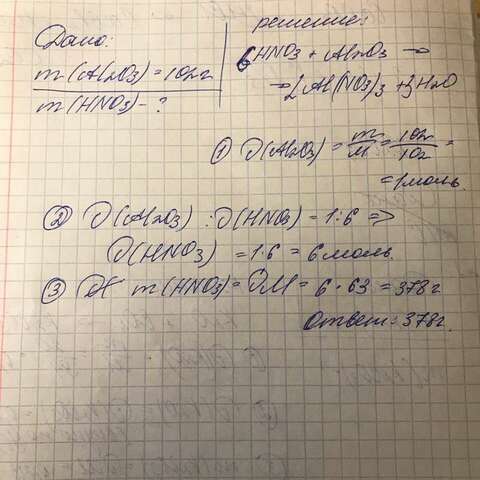 Дано:
m(Al2O3)=102г
m(HNO3)-?
решение:
6HNO3 + Al2O3 →
→ 2Al(NO3)3 + 3H2O
① ϑ(Al2O3) = m/M = 102/102 =
= 1 моль.
② ϑ(Al2O3) : ϑ(HNO3) = 1:6 =>
ϑ(HNO3) = 1·6 = 6 моль.
③ m(HNO3) = ϑM = 6·63 = 378г
Ответ: 378г.